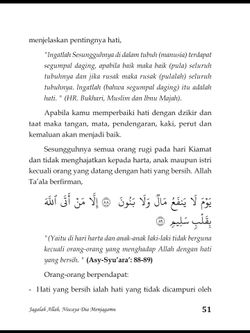 menjelaskan pentingnya hati,
"Ingatlah Sesungguhnya di dalam tubuh (manusia) terdapat
segumpal daging, apabila baik maka baik (pula) seluruh
tubuhnya dan jika rusak maka rusak (pulalah) seluruh
tubuhnya. Ingatlah (bahwa segumpal daging) itu adalah
hati. " (HR. Bukhari, Muslim dan Ibnu Majah).
Apabila kamu memperbaiki hati dengan dzikir dan
taat maka tangan, mata, pendengaran, kaki, perut dan
kemaluan akan menjadi baik.
Sesungguhnya semua orang rugi pada hari Kiamat
dan tidak menghajatkan kepada harta, anak maupun istri
kecuali orang yang datang dengan hati yang bersih. Allah
Ta'ala berfirman,
يَوْمَ لَا يَنفَعُ مَالٌ وَلَا بَنُونَ ۝٨٨ إِلَّا مَنْ أَتَى ٱللَّهَ
بِقَلْبٍ سَلِيمٍ ۝٨٩
"(Yaitu di hari harta dan anak-anak laki-laki tidak berguna
kecuali orang-orang yang menghadap Allah dengan hati
yang bersih. " (Asy-Syu'ara': 88-89)
Orang-orang berpendapat:
- Hati yang bersih ialah hati yang tidak dicampuri oleh
Jagalah Allah, Niscaya Dia Menjagamu 51